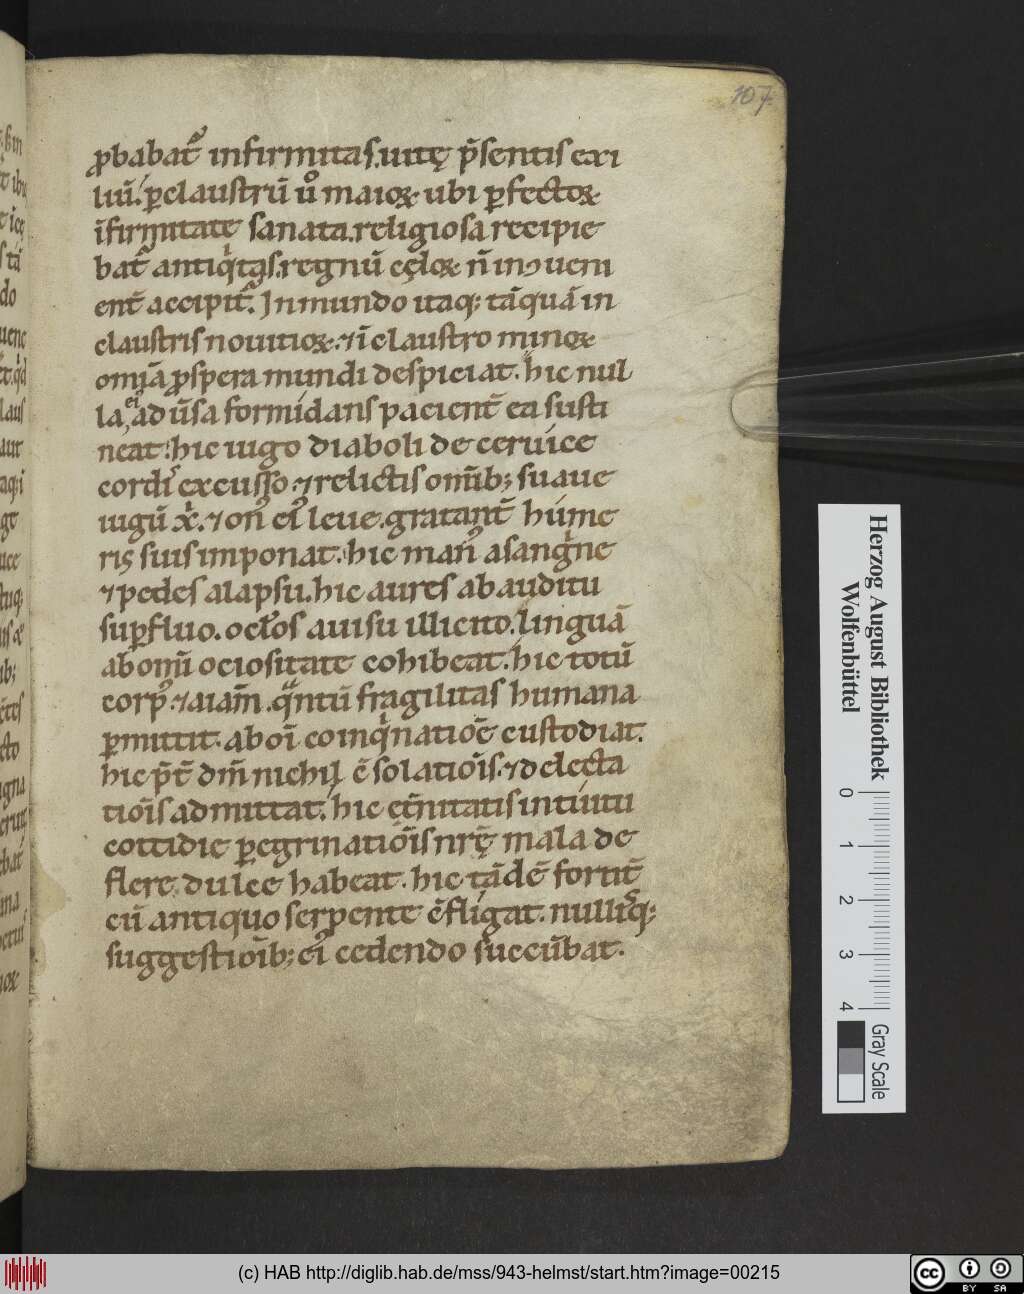 107
ꝓbabat᷑ infirmitas.uitę p̄sentis exi
liū. ꝑ claustrū ů maioꝝ ubi ꝑfectoꝝ
īfirmitate sanata.religiosa recipie
bat᷑ antiqͥtas.regnū cęloꝝ ñ inuueni
ent̄ accipit᷑. In mundo itaq; tāquā in
claustris nouitioꝝ.⁊ ī claustro minoꝝ
omīa ꝓspera mundi despiciat. hic nul
la ei᷒ adusa formidans pacient̄ ea susti
neat. hic iugo diaboli de ceruice
cordiͥ excusso.⁊ relictis om̄ib; suaue
iugū xͥ.⁊ on᷒ ei᷒ leue.gratant̄ hume
ris suis imponat. hic man᷒ a sangͥne
⁊ pedes a lapsu.hic aures ab auditu
suꝑfluo.ocl̄os a uisu illicito.linguā
ab omī ociositate cohibeat.hic totū
corp᷒.⁊ aiam̄.qͣntū fragilitas humana
ꝑmittit.ab oī coinqͥnatiōe custodiat.
hic p̄t̄ dm̄ nichil ē solatiōis.⁊ delecta
tiōis admittat. hic et̄nitatis intuitu
cottidie ꝑegrinatiōis nrę̄ mala de
flere dulce habeat. hic tādē fortit̄
cū antiquo serpente cōfligat. nullisq;
suggestioīb; ei᷒ cedendo succūbat.
Herzog August Bibliothek
Wolfenbüttel
0 1 2 3 4
Gray Scale
(c) HAB http://diglib.hab.de/mss/943-helmst/start.htm?image=00215
cc BY SA